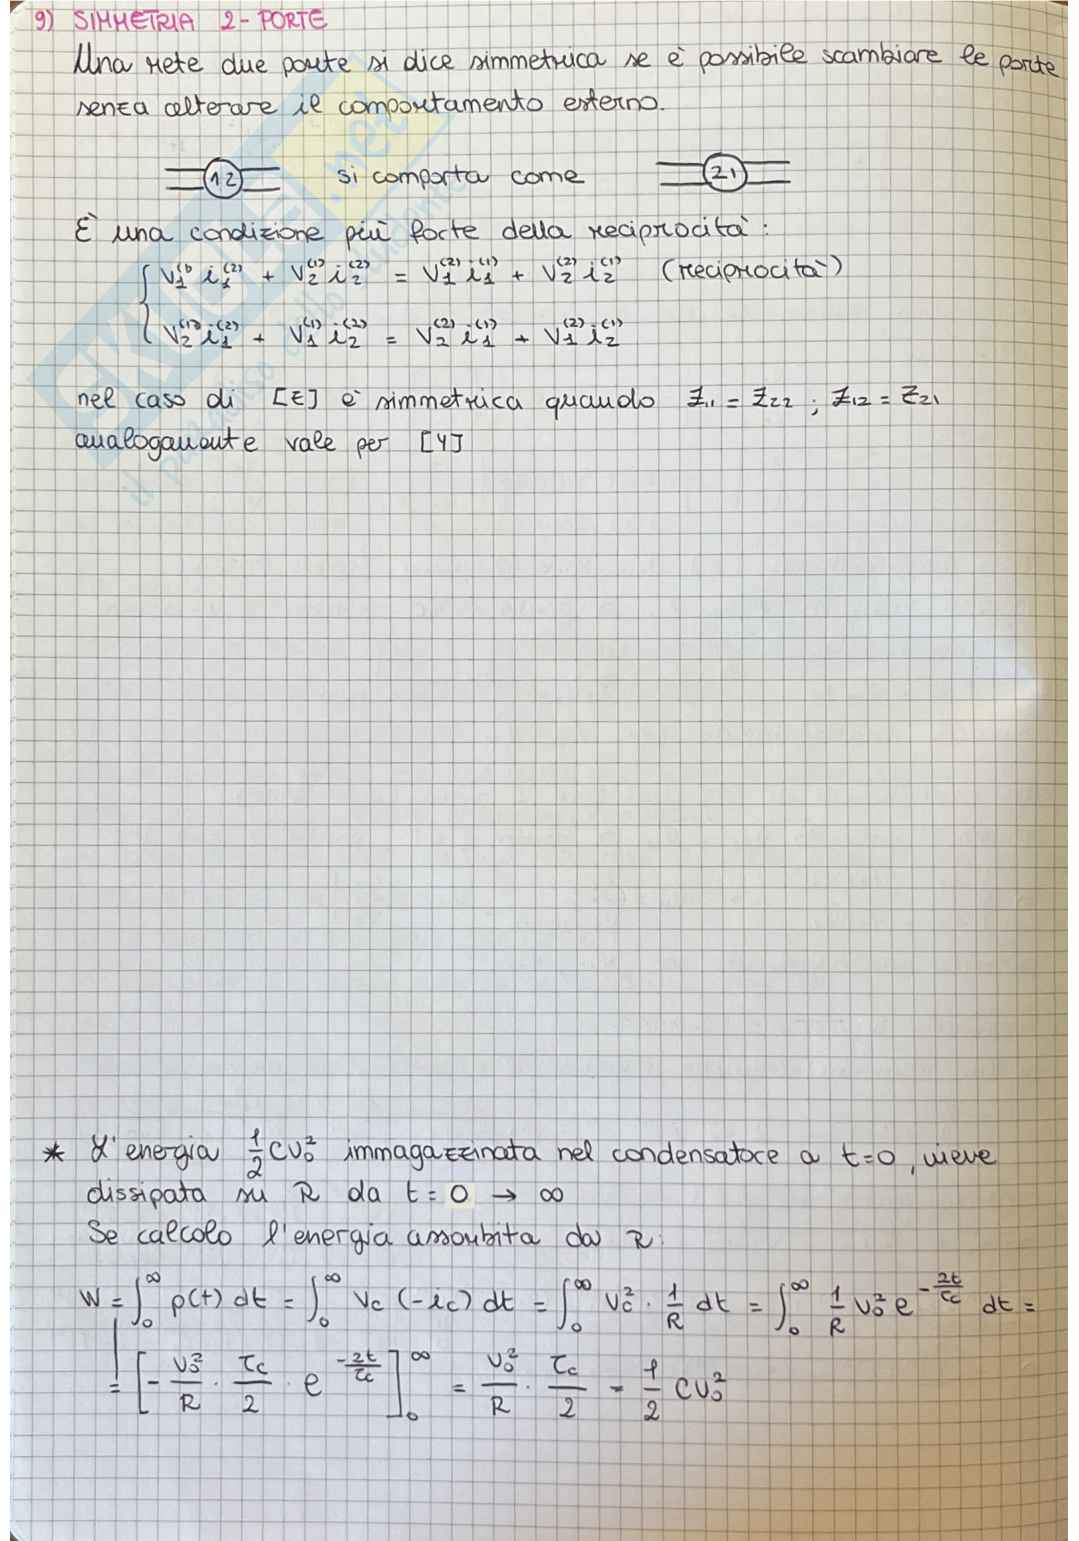 9) SIMMETRIA 2-PORTE
Una rete due porte si dice simmetrica se è possibile scambiare le porte
senza alterare il comportamento esterno.
12 si comporta come 21
È una condizione più forte della reciprocità:
V₁⁽¹⁾ i₁⁽²⁾ + V₂⁽¹⁾ i₂⁽²⁾ = V₁⁽²⁾ i₁⁽¹⁾ + V₂⁽²⁾ i₂⁽¹⁾ (reciprocità)
V₂⁽¹⁾ i₁⁽²⁾ + V₁⁽¹⁾ i₂⁽²⁾ = V₂⁽²⁾ i₁⁽¹⁾ + V₁⁽²⁾ i₂⁽¹⁾
nel caso di [Z] è simmetrica quando Z₁₁ = Z₂₂ ; Z₁₂ = Z₂₁
analogamente vale per [Y]
* L'energia 1/2 CV₀² immagazzinata nel condensatore a t=0, viene
dissipata su R da t = 0 → ∞
Se calcolo l'energia assorbita da R:
W = ∫₀^∞ p(t) dt = ∫₀^∞ Vc (-ic) dt = ∫₀^∞ Vc² · 1/R dt = ∫₀^∞ 1/R V₀² e^(-2t/τc) dt =
= [- V₀²/R · τc/2 · e^(-2t/τc)]₀^∞ = V₀²/R · τc/2 = 1/2 CV₀²
SKUOLA.net